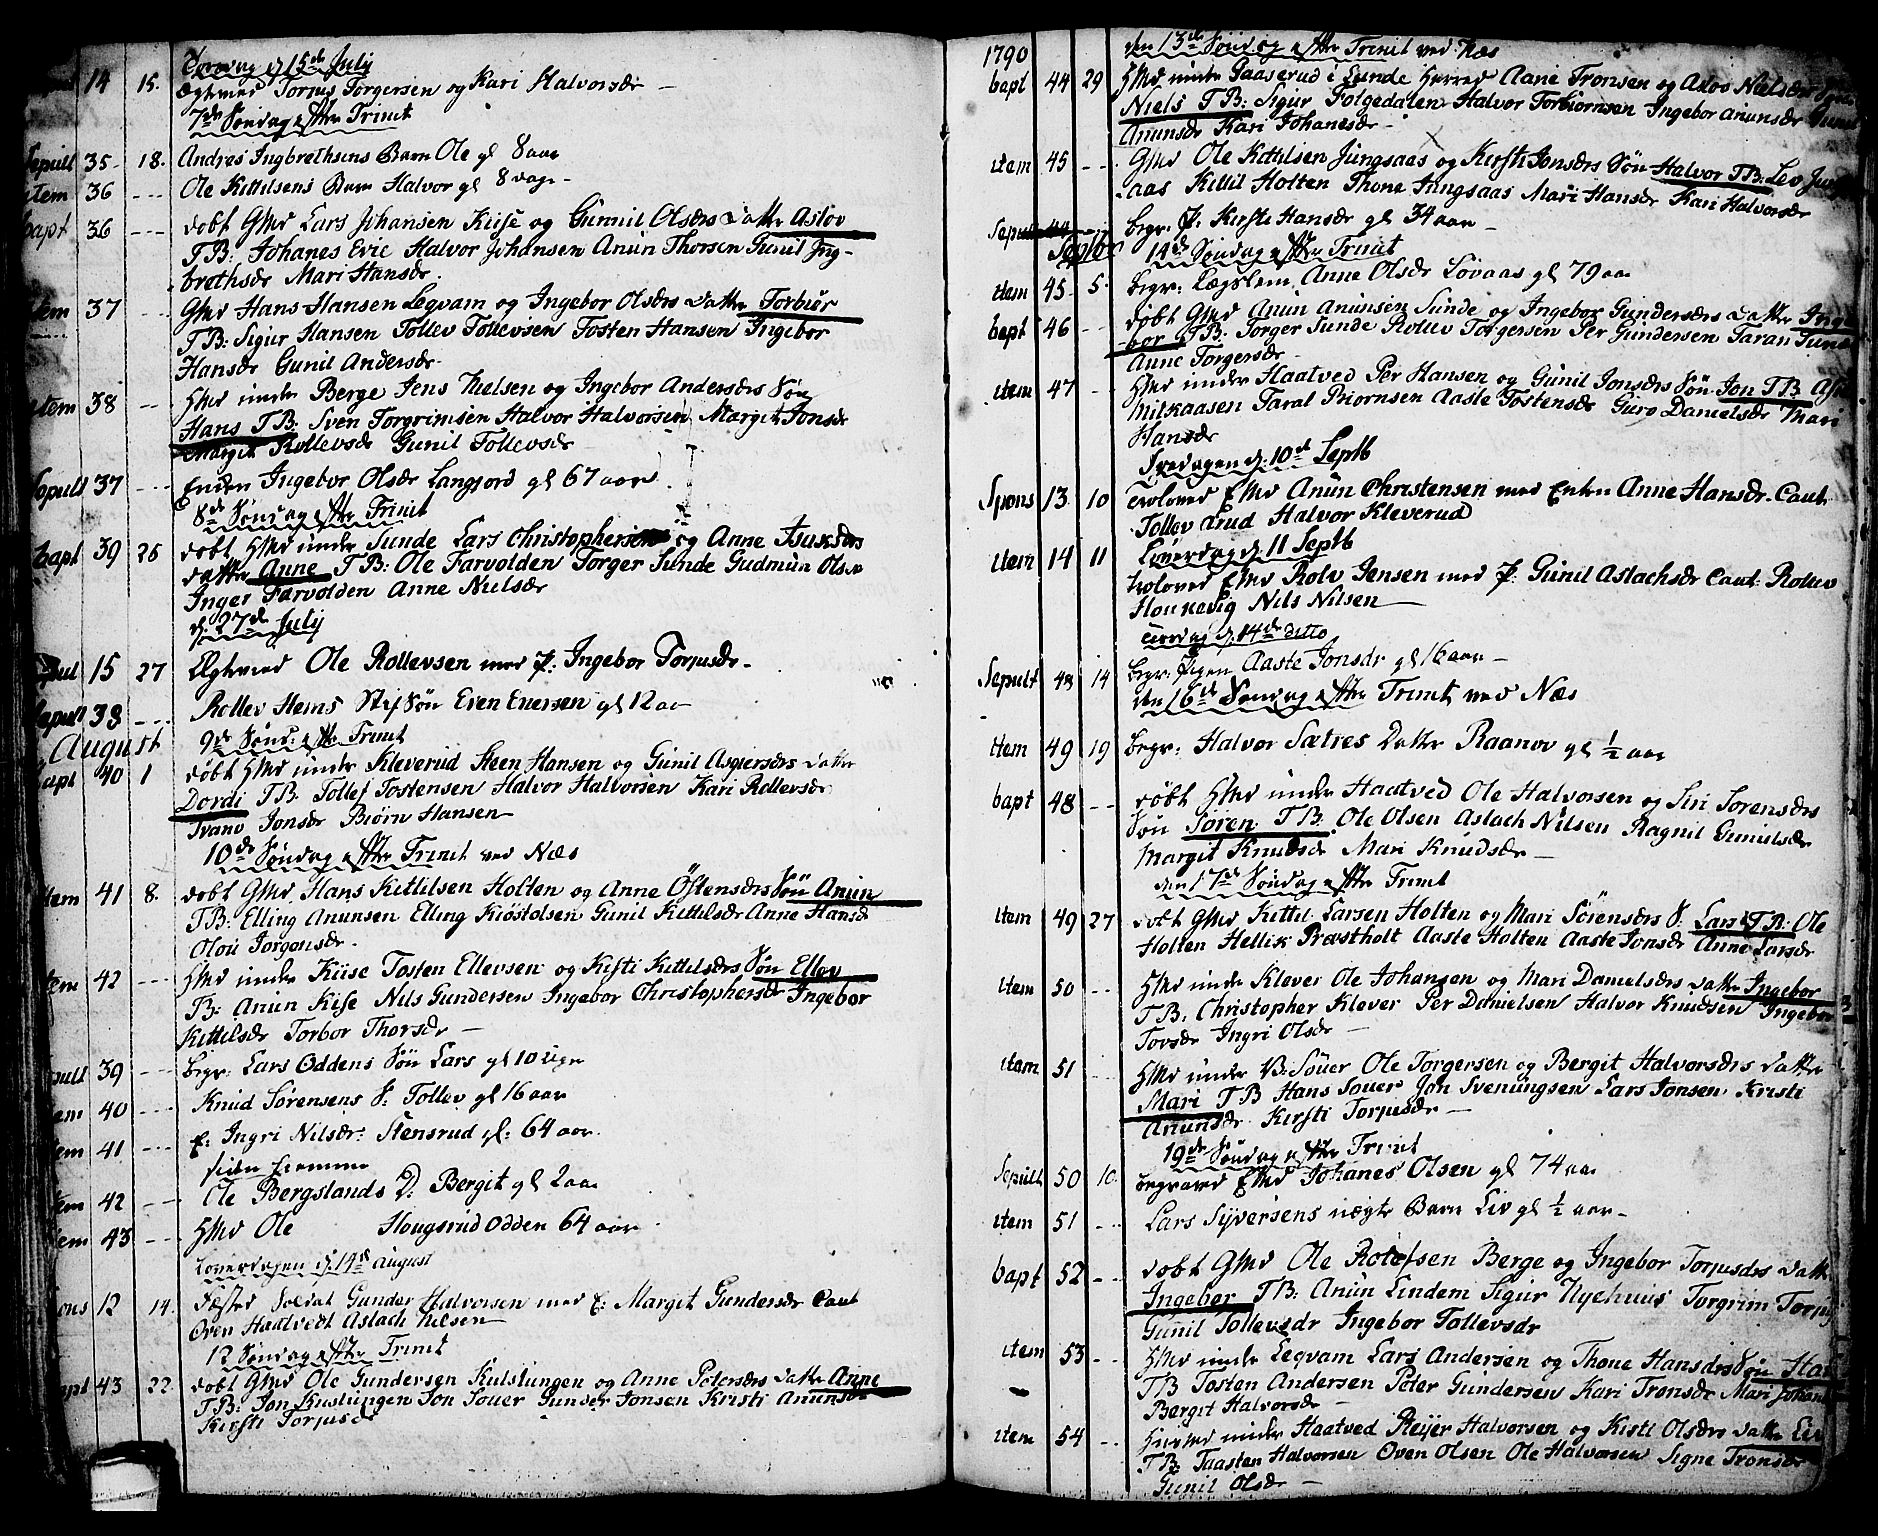 Torsdag d 15de July
14 15. Egtviet Torjus Torgersen og Kari Halvorsdr
7de Søndag efter Trinit
Sepult 35 18. Andres Ingbrethsens Barn Ole gl 8 aar
Item 36 Ole Kittilsens Barn Halvor gl 8 dage
bapt 36 døbt GMd Lars Johansen Kiise og Gunnil Olsdrs datter Aslov
TB: Johanes Evie Halvor Johansen Anun Thorsen Gunil Ing-
brethsdr Mari Hansdr.
Item 37 GMd Hans Hansen Legvam og Ingebor Olsdrs datter Torbiør
TB: Sigur Hansen Tollev Tollevsen Tosten Hansen Ingebor
Hansdr Gunil Andersdr
Item 38 HMd under Berge Jens Nielsen og Ingebor Andersdrs Søn
Hans TB: Sven Torgrimsen Halvor Halvorsen Margit Jonsdr
Margit Rollevsdr Gunil Tollevsdr
Sepult 37 Enken Ingebor Olsdr Langjord gl 67 aar
8de Søndag efter Trinit
bapt 39 25 døbt HMd under Sunde Lars Christophersen og Anne Isaksdrs
datter Anne TB: Ole Farvolden Torger Sunde Gudmun Olsen
Inger Farvolden Anne Nielsdr
d. 27de July
15 27 Egtviet Ole Rollevsen med P: Ingebor Torjusdr
Sepult 38 Rollev Hems Stifsøn Even Evensen gl 12 aar
August
9de Sønd: efter Trinit
bapt 40 1 døbt HMd under Kleverud Steen Hansen og Gunil Asgiersdrs datter
Dordi TB. Tollef Tostensen Halvor Halvorsen Kari Rollevsdr
Jvano Jonsdr Biørn Hansen
10de Søndag efter Trinit ved Næs
Item 41 8. døbt GMd Hans Kittilsen Holten og Anne Østensdrs Søn Anun
TB: Elling Anunsen Elling Kiøstolsen Gunil Kittilsdr Anne Hansdr
Olou Jorgonsdr
Item 42 HMd under Kiise Tosten Ellevsen og Kisti Kittilsdrs Søn Ellev
TB: Anun Kise Nils Gundersen Ingebor Christophersdr Ingebor
Kittilsdr Torbor Thorsdr
Sepult 39 Begr: Lars Oddens Søn Lars gl 10 uger
Item 40 Knud Sørensens S: Tollev gl 16 aar
Item 41 E: Ingri Nilsdr Stensrud gl: 64 aar
Item 42 Ole Bergslands D: Bergit gl 2 aar
Item 43 HMd Ole Hougsrudodden 64 aar
Løverdagen d. 14de August
Spons 12 14. Fæsted Soldat Gunder Halvorsen med E: Margit Gundersdr Caut
Oven Haatvedt Aslach Nilsen
12 Søndag efter Trinit
bapt 43 22 døbt GMd Ole Gundersen Kulslungen og Anne Petersdrs datter Anne
TB: Jon Kuslungen Jon Souer Gunder Jonsen Kristi Anunsdr
Kirsti Torjusdr
1790 den 13de Søndag efter Trinit ved Næs
bapt 44 29 HMd under Gaaserud i Lunde Herred Aane Tronsen og Aslov Nielsdrs Søn
Niels TB: Sigur Folgedalen Halvor Torbiornsen Ingebor Anunsdr
Anunsdr Kari Johansdr
Item 45 GMd Ole Kittilsen Jungsaas og Kirsti Jonsdrs Søn Halvor TB: Lev Jungs
aas Kittil Holten Thone Jungsaas Mari Hansdr Kari Halvorsdr
Sepult 44 Begr: P: Kirsti Hansdr gl 34 aar
Septbr 14de Søndag efter Trinit
Item 45 5. Begr: Lægslem Anne Olsdr Løvaas gl 79 aar
bapt 46 døbt GMd Anun Anunsen Sunde og Ingebor Gundersdrs datter Inge
bor TB: Torger Sunde Rollev Torgersen Per Gundersen Taran Sunde
Anne Torgersdr
Item 47 HMd under Haatved Per Hansen og Gunil Jonsdrs Søn Jon TB
Milkaasen Taral Biornsen Aaste Tostensdr Guro Danielsdr Mari
Hansdr
Fredagen d. 10de Septb
Spons 13 10 Trolovet EMd Anun Christensen med Enken Anne Hansdr Caut.
Tollev Lrud Halvor Kleverud
Løverdag d 11 Septb
Item 14 11 Trolovet EMd Rolv Jensen med P: Gunil Aslachsdr Caut: Rollev
Houkevig Nils Nilsen
Tirsdag d. 14de ditto
Sepult 48 14 Begr: Pigen Aaste Jonsdr gl 16 aar
den 16de Søndag efter Trinit ved Næs
Item 49 19 Begr: Halvor Sætres Datter Raanov gl ½ aar
bapt 48 døbt HMd under Haatved Ole Halvorsen og Siri Sorensdrs
Søn Søren TB. Ole Olsen Aslach Nilsen Ragnil Gunulsdr
Margit Knudsdr Mari Knudsdr
den 17de Søndag efter Trinit
Item 49 27 døbt GMd Kittil Larsen Holten og Mari Sörensdrs S. Lars TB: Ole
Holten Hellik Præstholt Aaste Holten Aaste Jonsdr Anne Larsdr
Item 50 HMd under Klever Ole Johansen og Mari Danielsdrs datter Ingebor
TB: Christopher Klever Per Danielsen Halvor Knudsen Ingebor
Tovsdr Ingri Olsdr
Item 51 HMd under B: Söuer Ole Torgersen og Bergit Halvorsdrs datter
Mari TB Hans Souer Jon Svenungsen Lars Jonsen Kristi
Anunsdr Kirsti Torjusdr
19de Søndag efter Trinit
Sepult 50 10. begravet EMd Johanes Olsen gl 74 aar
Item 51 Lars Syversens uægte Barn Liv gl ½ aar
bapt 52 døbt GMd Ole Rolefsen Berge og Ingebor Torjusdrs datter
Ingebor TB: Anun Lindem Sigur Nyehuus Torgrim Torjus
Gunnil Tollevsdr Ingebor Tollevsdr
Item 53 HMd under Legvam Lars Andersen og Thone Hansdrs Søn Han
TB Tosten Andersen Peter Gundersen Kari Tronsdr Mari Johan
Bergit Halvorsdr
Item 54 HMd under Haatved Reijer Halvorsen og Kisti Olsdrs datter Liv
TB: Taasten Halvorsen Oven Olsen Ole Halvorsen Signe Tronsdr
Gunil Olsdr